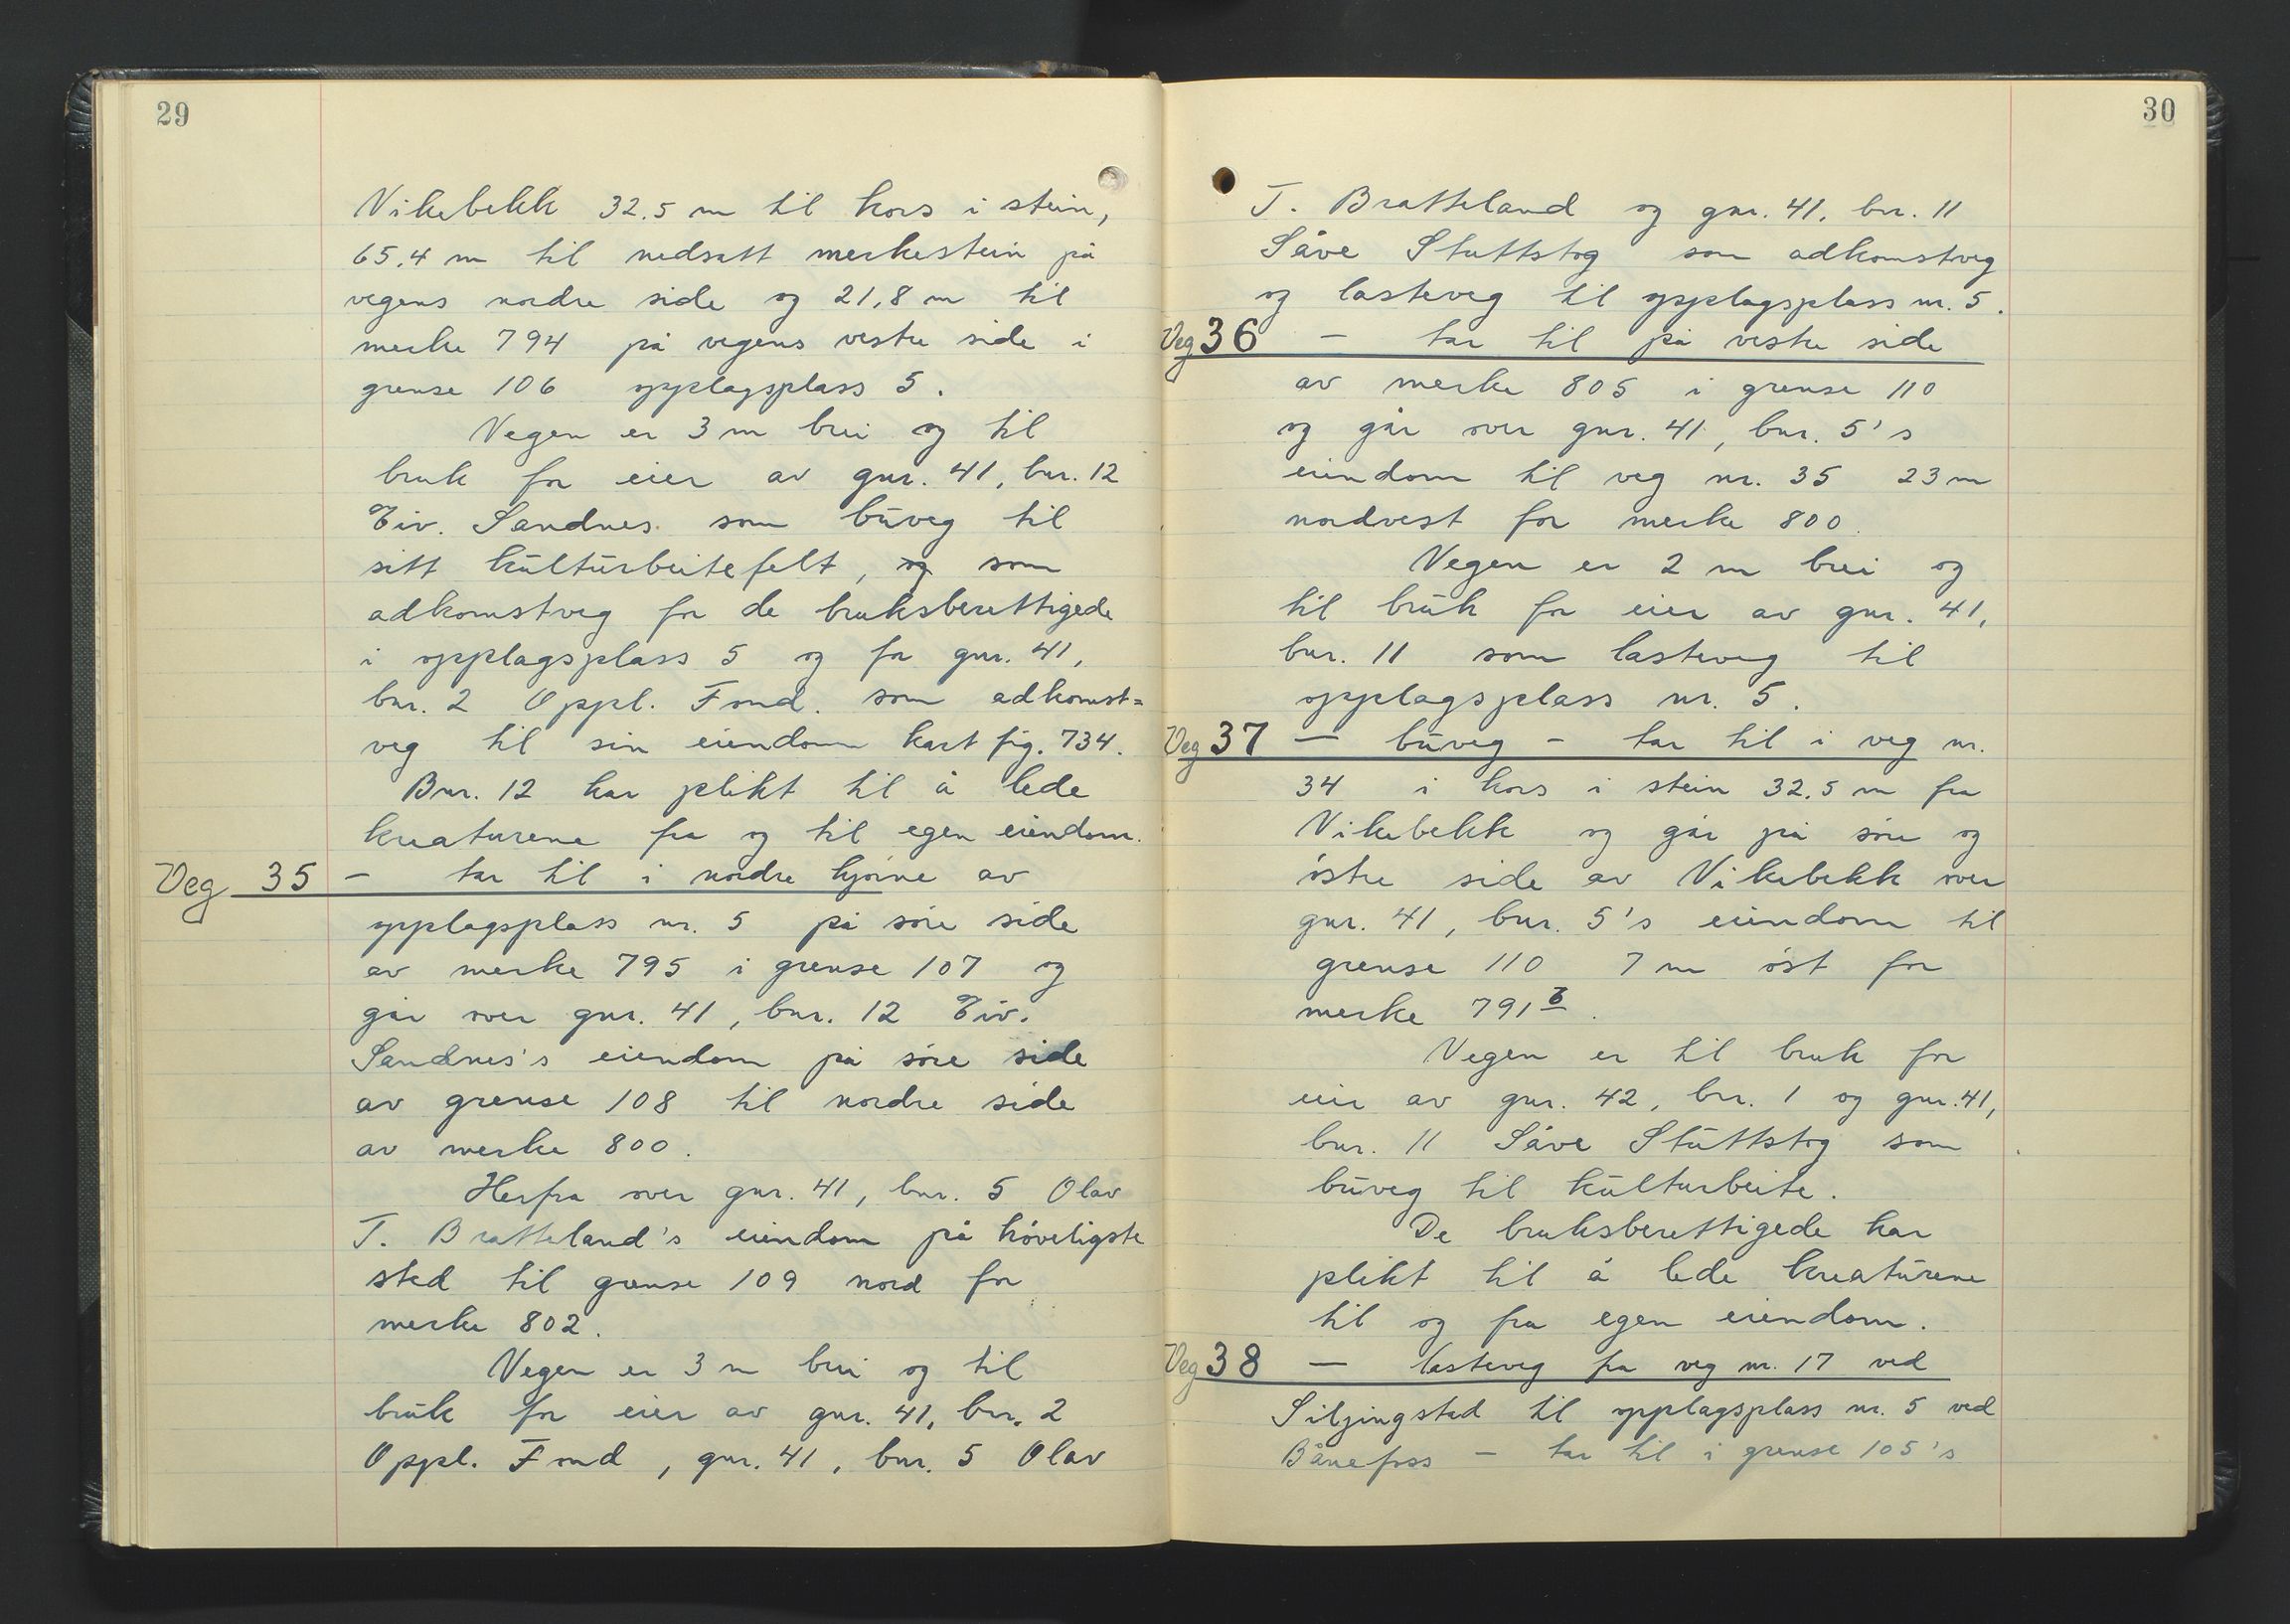 29
Vikebekk 32.5 m til kors i stein,
65.4 m til nedsatt merkestein på
vegens nordre side og 21,8 m til
merke 794 på vegens vestre side i
grense 106 opplagsplass 5.
Vegen er 3 m brei og til
bruk for eier av gnr. 41, bnr. 12
Eiv. Sandnes som buveg til
sitt kulturbeitefelt, og som
adkomstveg for de bruksberettigede
i opplagsplass 5 og for gnr. 41,
bnr. 2 Oppl. Fond. som adkomst=
veg til sin eiendom kart fig. 734.
Bnr. 12 har plikt til å lede
kreaturene fra og til egen eiendom.
Veg 35 – tar til i nordre hjørne av
opplagsplass nr. 5 på søre side
av merke 795 i grense 107 og
går over gnr. 41, bnr. 12 Eiv.
Sandnes's eiendom på søre side
av grense 108 til nordre side
av merke 800.
Herfra over gnr. 41, bnr. 5 Olav
T. Bratteland's eiendom på høveligste
sted til grense 109 nord for
merke 802.
Vegen er 3 m brei og til
bruk for eier av gnr. 41, bnr. 2
Oppl. Fond, gnr. 41, bnr. 5 Olav
30
T. Bratteland og gnr. 41, bnr. 11
Såve Stuttstog som adkomstveg
og lasteveg til opplagsplass nr. 5.
Veg 36 – tar til på vestre side
av merke 805 i grense 110
og går over gnr. 41, bnr. 5's
eiendom til veg nr. 35 23 m
nordvest for merke 800.
Vegen er 2 m brei og
til bruk for eier av gnr. 41,
bnr. 11 som lasteveg til
opplagsplass nr. 5.
Veg 37 – buveg – tar til i veg nr.
34 i kors i stein 32.5 m fra
Vikebekk og går på søre og
østre side av Vikebekk over
gnr. 41, bnr. 5's eiendom til
grense 110 7 m øst for
merke 791 b.
Vegen er til bruk for
eier av gnr. 42, bnr. 1 og gnr. 41,
bnr. 11 Såve Stuttstog som
buveg til kulturbeite.
De bruksberettigede har
plikt til å lede kreaturene
til og fra egen eiendom.
Veg 38 – lasteveg fra veg nr. 17 ved
Siljingstad til opplagsplass nr. 5 ved
Bånefoss – tar til i grense 105's